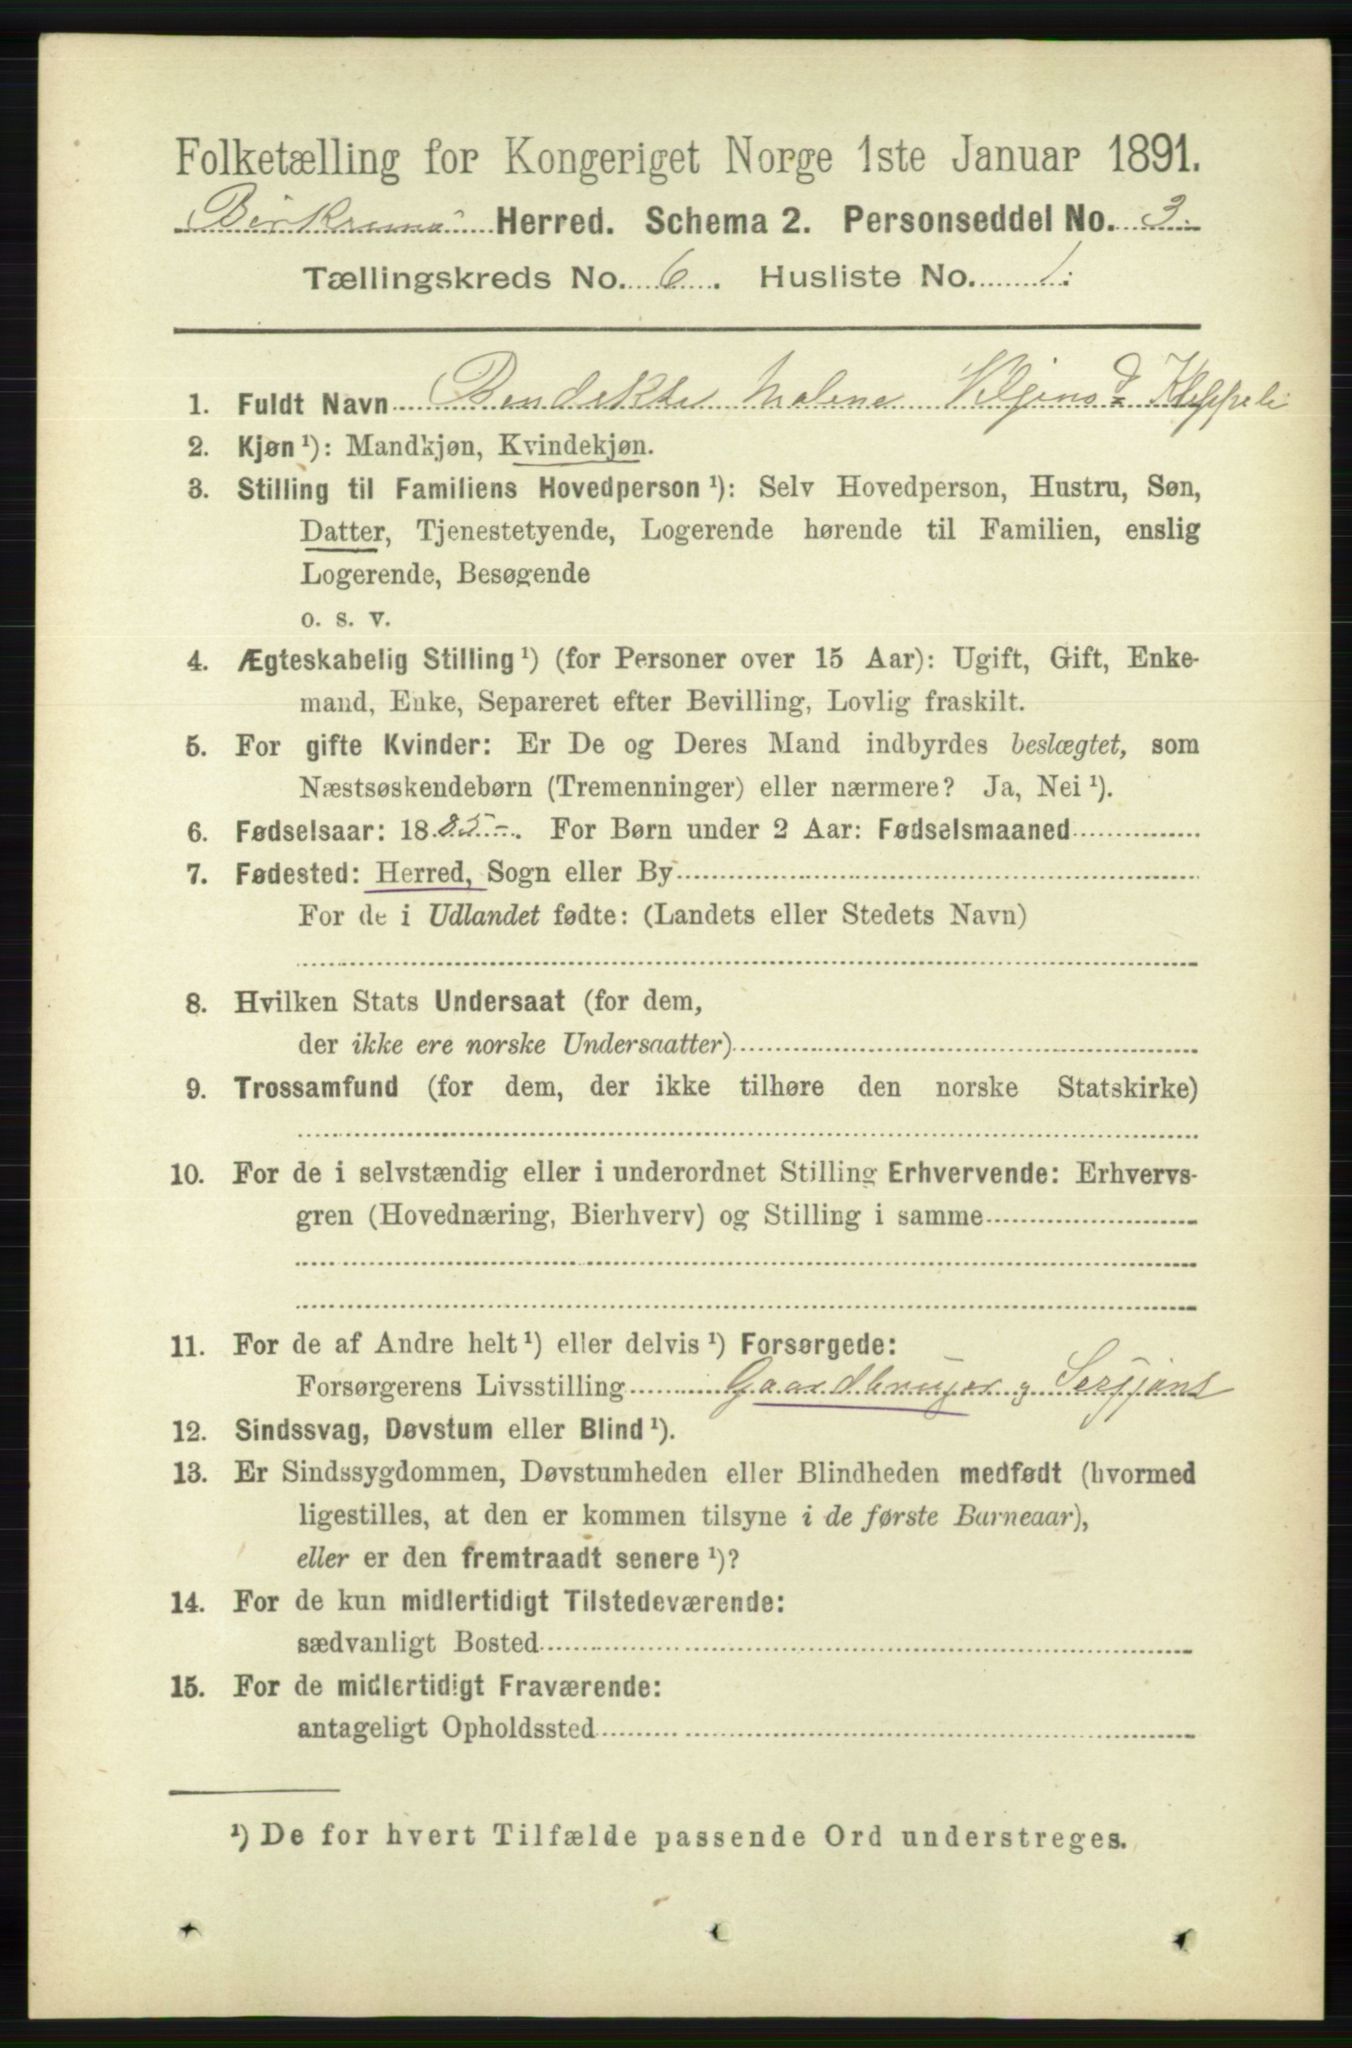 Folketælling for Kongeriget Norge 1ste Januar 1891.
Birkrems Herred. Schema 2. Personseddel No. 3.
Tællingskreds No. 6. Husliste No. 1.
1. Fuldt Navn Bendikte Malene Veljens D Kleppeli
2. Kjøn ¹): Mandkjøn, Kvindekjøn.
3. Stilling til Familiens Hovedperson ¹): Selv Hovedperson, Hustru, Søn,
Datter, Tjenestetyende, Logerende hørende til Familien, enslig
Logerende, Besøgende
o. s. v.
4. Ægteskabelig Stilling ¹) (for Personer over 15 Aar): Ugift, Gift, Enke-
mand, Enke, Separeret efter Bevilling, Lovlig fraskilt.
5. For gifte Kvinder: Er De og Deres Mand indbyrdes beslægtet, som
Næstsøskendebørn (Tremenninger) eller nærmere? Ja, Nei ¹).
6. Fødselsaar: 1885. For Børn under 2 Aar: Fødselsmaaned
7. Fødested: Herred, Sogn eller By
For de i Udlandet fødte: (Landets eller Stedets Navn)
8. Hvilken Stats Undersaat (for dem,
der ikke ere norske Undersaatter)
9. Trossamfund (for dem, der ikke tilhøre den norske Statskirke)
10. For de i selvstændig eller i underordnet Stilling Erhvervende: Erhvervs-
gren (Hovednæring, Bierhverv) og Stilling i samme
11. For de af Andre helt ¹) eller delvis ¹) Forsørgede:
Forsørgerens Livsstilling Gaardbruger g Sersjant
12. Sindssvag, Døvstum eller Blind ¹).
13. Er Sindssygdommen, Døvstumheden eller Blindheden medfødt (hvormed
ligestilles, at den er kommen tilsyne i de første Barneaar),
eller er den fremtraadt senere ¹)?
14. For de kun midlertidigt Tilstedeværende:
sædvanligt Bosted
15. For de midlertidigt Fraværende:
antageligt Opholdssted
¹) De for hvert Tilfælde passende Ord understreges.